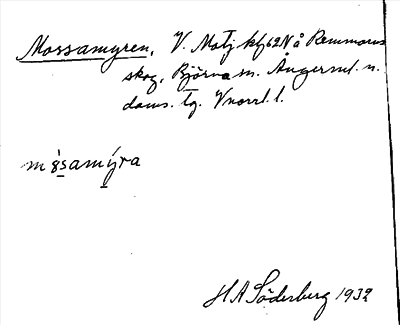 Mossamyren, V. Motj kf 62 Nå Remmarns
skog, Björna sn. Ångerml. n.
doms. tg. Vnorrl. l.
m 8̀samýra
H A Söderberg 1932